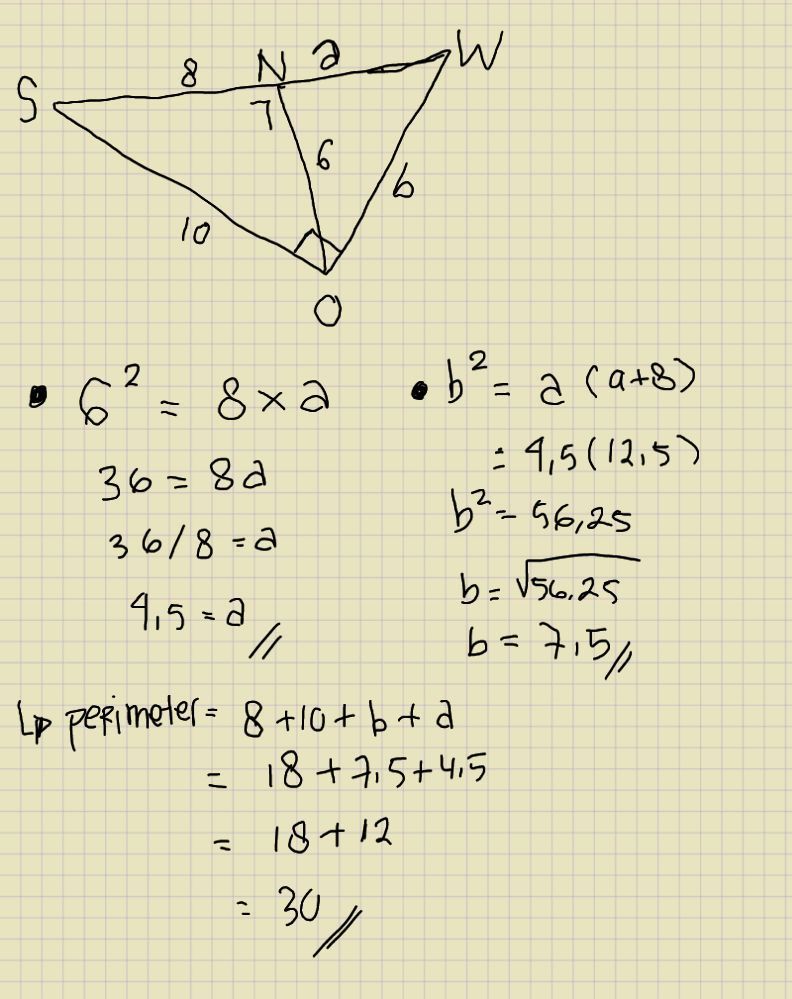 S 8 N a W
6
b
10
O
• 6² = 8 × a
36 = 8a
36/8 = a
4,5 = a //
• b² = a (a+8)
= 4,5 (12,5)
b² = 56,25
b = √56,25
b = 7,5 //
↳ perimeter = 8 + 10 + b + a
= 18 + 7,5 + 4,5
= 18 + 12
= 30 //